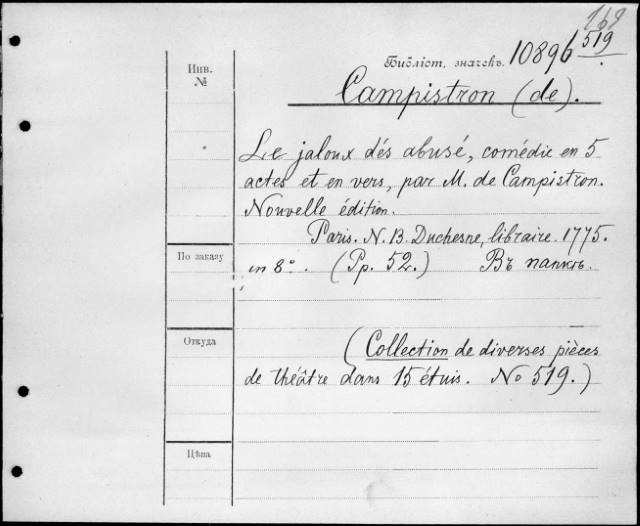 168
Инв. №
Библіот. значекъ. 10896 519
Campistron (de).
Le jaloux dés abusé, comédie en 5
actes et en vers, par M. de Campistron.
Nouvelle édition.
Paris. N. B. Duchesne, libraire. 1775.
По заказу
in 8°. (Pp. 52.) Въ папкѣ.
Откуда
(Collection de diverses pièces
de théâtre dans 15 étuis. No 519.)
Цѣна